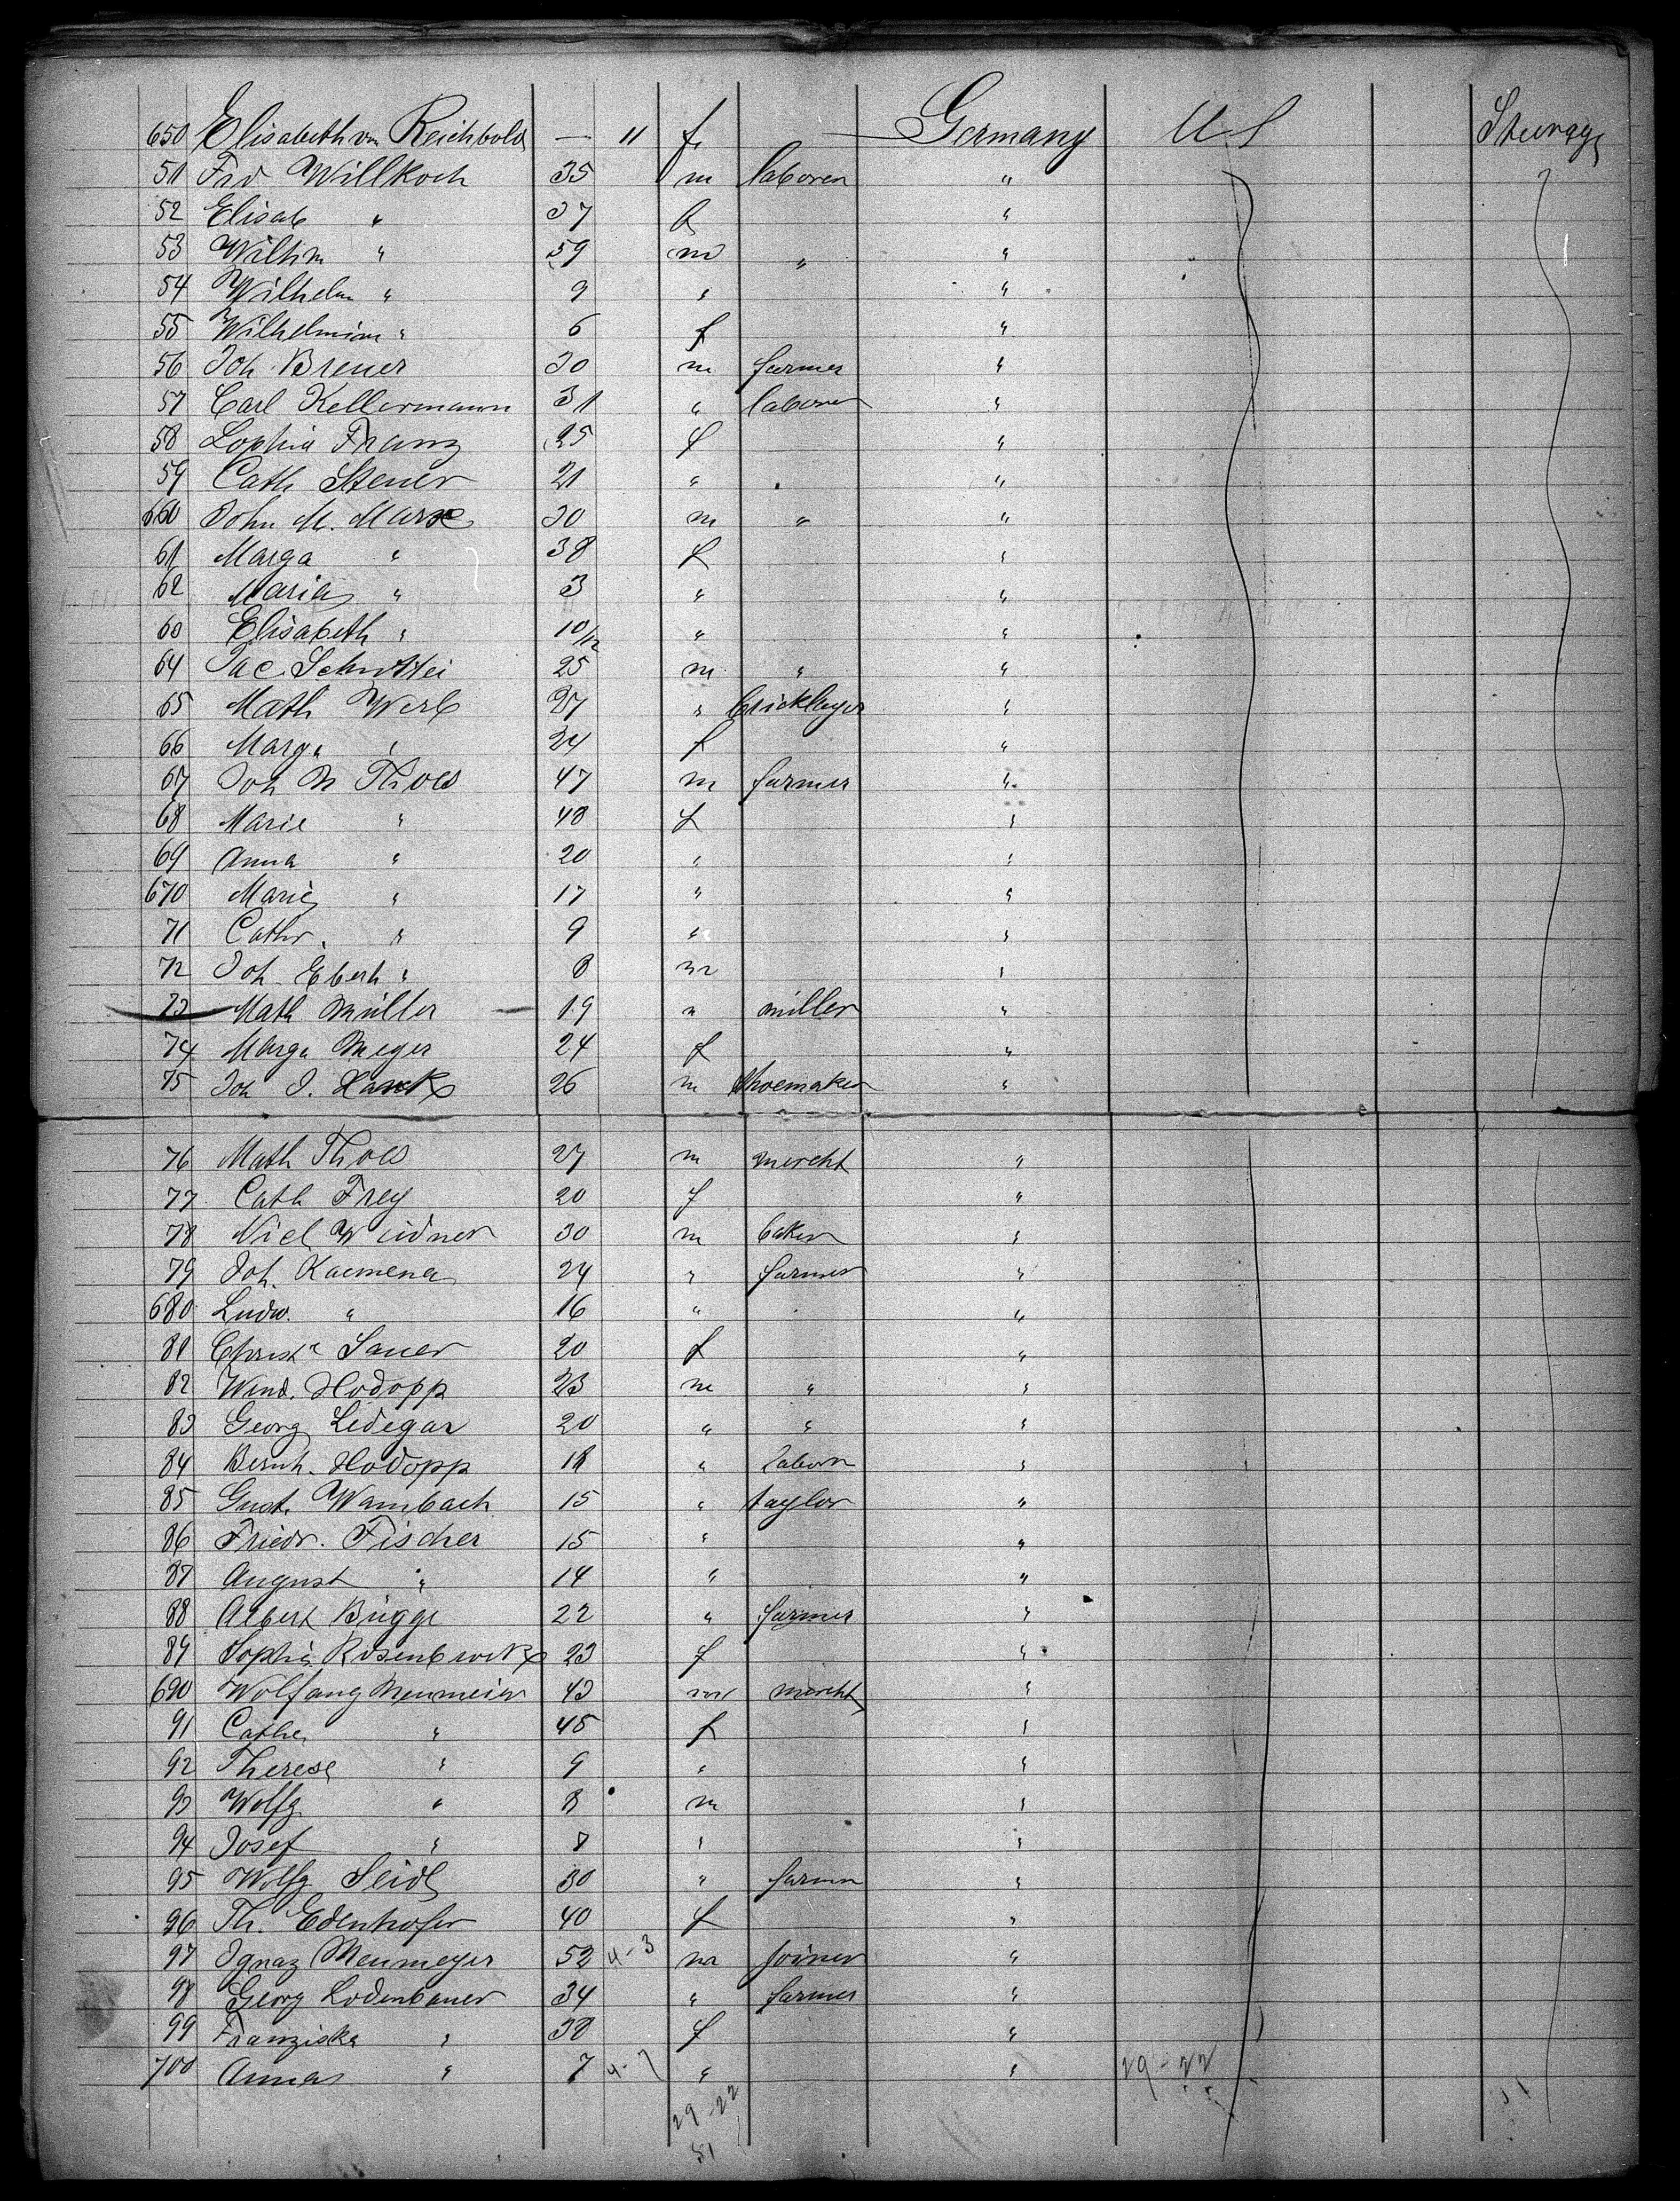 650 Elisabeth von Reichbold — 11 f. — Germany U S Steerage
51 Frd Willkoch 35 m laborer "
52 Elisab " 37 f "
53 Wilhm " 59 m " "
54 Wilhelm " 9 " "
55 Wilhelmine " 6 f "
56 Joh. Breuer 30 m farmer "
57 Carl Kellermann 31 " laborer "
58 Sophia Franz 25 f "
59 Cath Steuer 21 " "
660 John M. Marx 30 m " "
61 Marga " 38 f "
62 Maria " 3 " "
63 Elisabeth " 10/12 " "
64 Jac. 25 m " "
65 Math Werb 27 " bricklayer "
66 Marga " 24 f "
67 Joh N Thoes 47 m farmer "
68 Marie " 48 f "
69 Anna " 20 " "
670 Marie " 17 " "
71 Cathr. " 9 " "
72 Joh. Eberh " 8 m "
73 Math Müller 19 " miller "
74 Marga Meyer 24 f "
75 Joh J. Hanck 26 m shoemaker "
76 Math Thoes 27 m mercht "
77 Cath Frey 20 f "
78 Nicl Weidner 30 m baker "
79 Joh. Kaemena 24 " farmer "
680 Ludw. " 16 " "
81 Christe Sauer 20 f "
82 Wend. Hodapp 23 m " "
83 Georg Ledegar 20 " " "
84 Bernh. Hodapp 18 " laborer "
85 Gust. Wambach 15 " taylor "
86 Friedr. Fischer 15 " "
87 August " 14 " "
88 Albert Bügge 22 " farmer "
89 Sophie Rosenbrock 23 f "
690 Wolfgang Neumeier 43 m mercht "
91 Cathe " 45 f "
92 Therese " 9 " "
93 Wolfg " 8 m "
94 Josef " 7 " "
95 Wolfg Seidl 30 " farmer "
96 Th. Edenhofer 40 f "
97 Ignaz Neumeyer 52 4-3 m joiner "
98 Georg Lodenbauer 34 " farmer "
99 Franziska " 38 f "
700 Anna " 7 4-7 " " 29-22
29-22
51